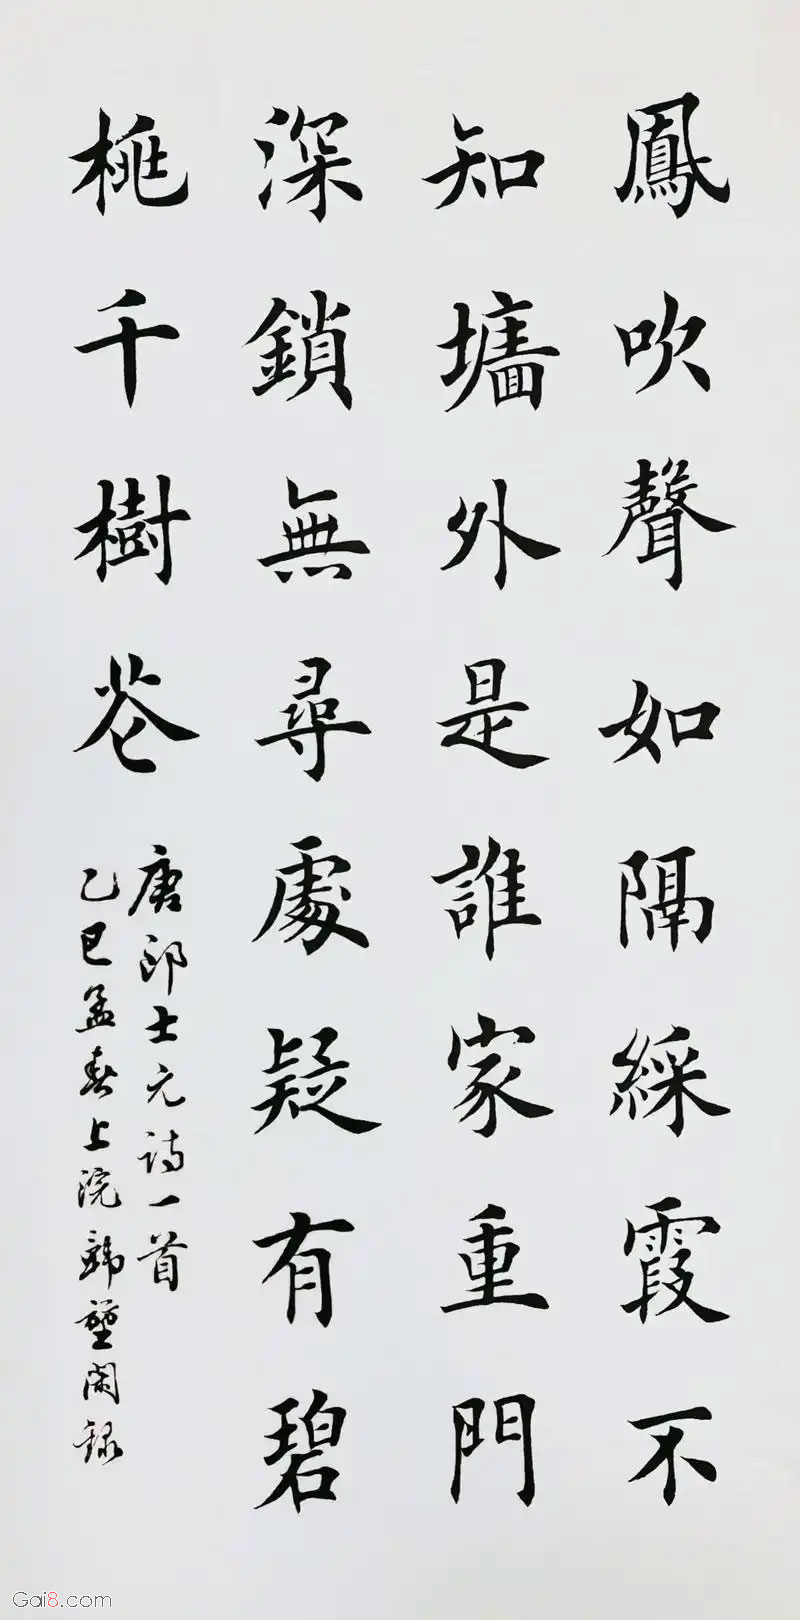 鳳吹聲如隔綵霞不
知墻外是誰家重門
深鎖無尋處疑有碧
桃千樹花
唐郎士元詩一首
乙巳孟春上浣韓壟閑錄
Gai8.com